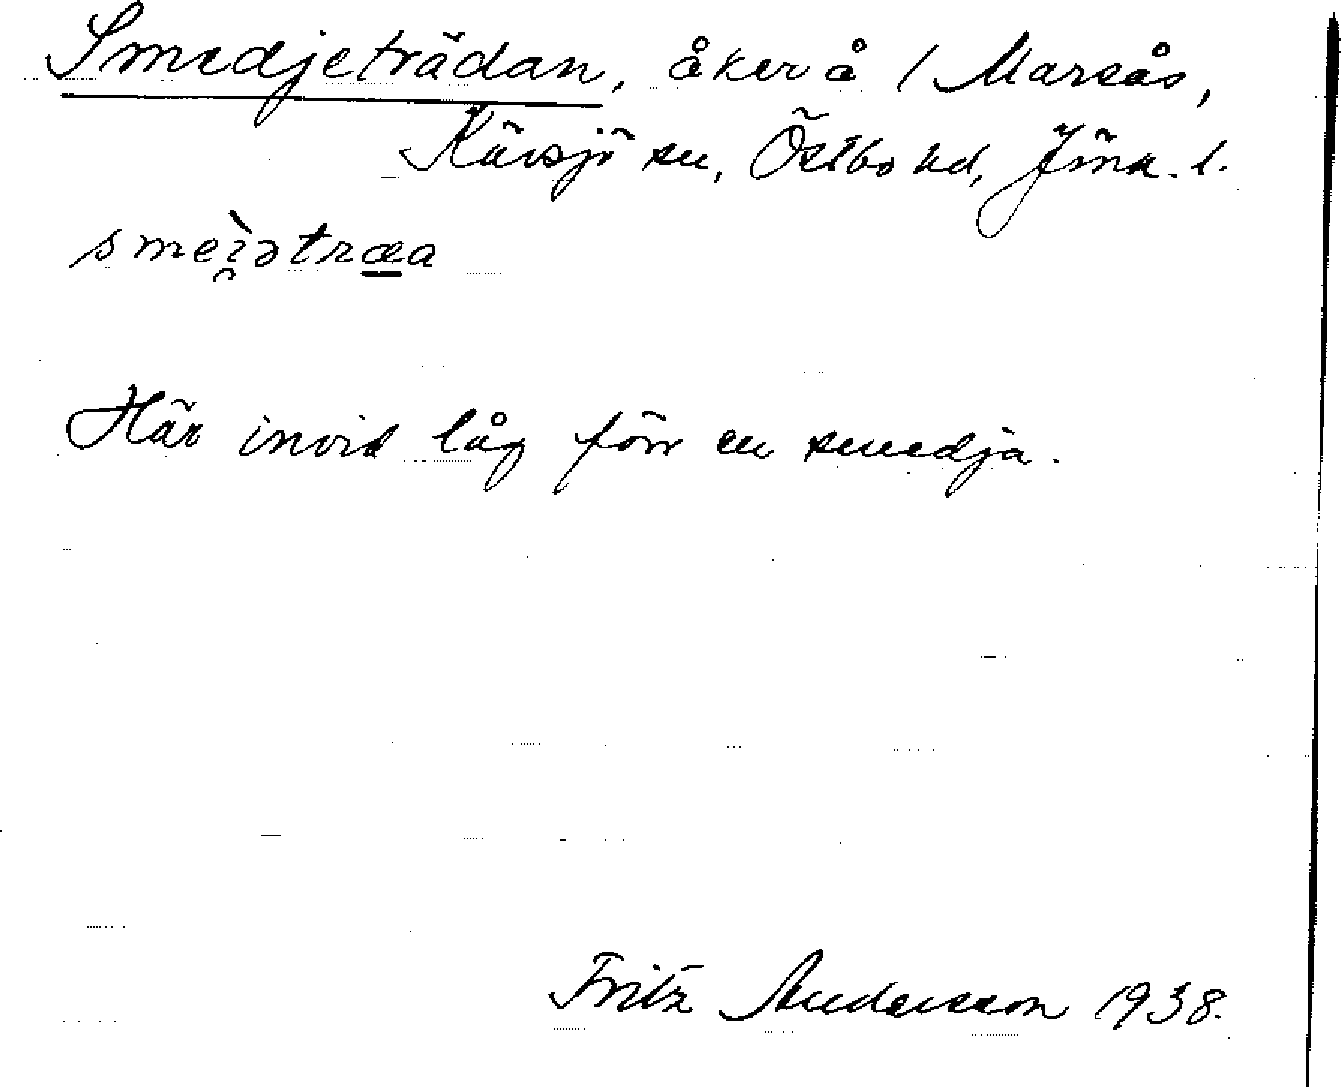 Smedjeträdan, åker å 1 Marsås,
Kävsjö sn, Östbo hd, Jönk. l.
smeì̯ətræa
Här invid låg förr en smedja.
Fritz Andersson 1938.